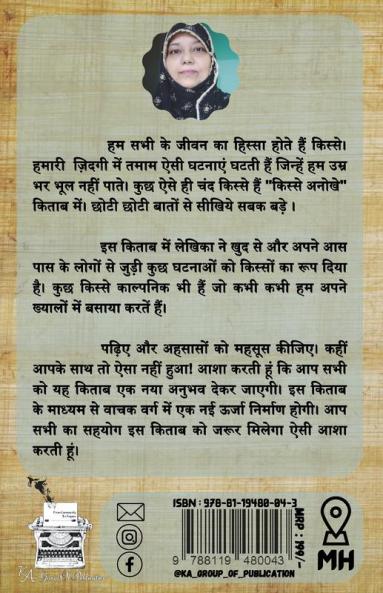 हम सभी के जीवन का हिस्सा होते हैं किस्से।
हमारी ज़िदगी में तमाम ऐसी घटनाएं घटती हैं जिन्हें हम उम्र
भर भूल नहीं पाते। कुछ ऐसे ही चंद किस्से हैं "किस्से अनोखे"
किताब में। छोटी छोटी बातों से सीखिये सबक बड़े ।
इस किताब में लेखिका ने खुद से और अपने आस
पास के लोगों से जुड़ी कुछ घटनाओं को किस्सों का रूप दिया
है। कुछ किस्से काल्पनिक भी हैं जो कभी कभी हम अपने
ख्यालों में बसाया करतें हैं।
पढ़िए और अहसासों को महसूस कीजिए। कहीं
आपके साथ तो ऐसा नहीं हुआ! आशा करती हूं कि आप सभी
को यह किताब एक नया अनुभव देकर जाएगी। इस किताब
के माध्यम से वाचक वर्ग में एक नई ऊर्जा निर्माण होगी। आप
सभी का सहयोग इस किताब को जरूर मिलेगा ऐसी आशा
करती हूं।
ISBN : 978-81-19480-04-3
MRP : 199/-
9 788119 480043
@KA_GROUP_OF_PUBLICATION
MH